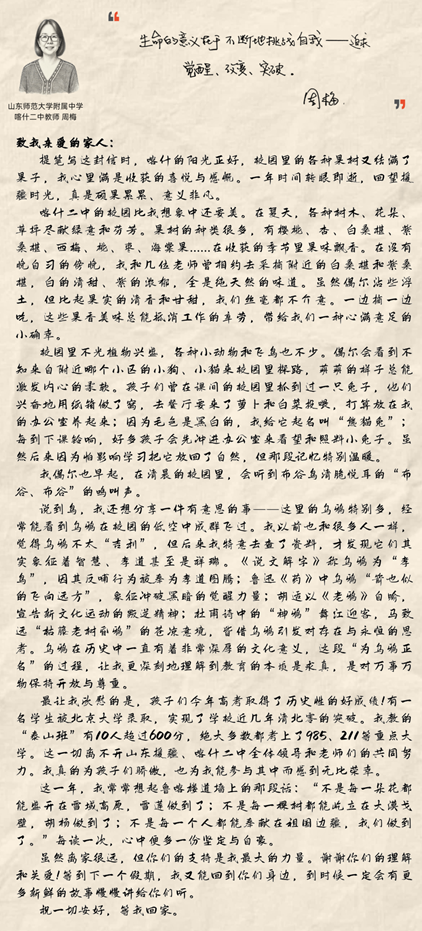 生命的意义在于不断地挑战自我——追求
觉醒、改变、突破。
周梅
山东师范大学附属中学
喀什二中教师 周梅
致我亲爱的家人：
提笔写这封信时，喀什的阳光正好，校园里的各种果树又结满了
果子，我心里满是收获的喜悦与感慨。一年时间转眼即逝，回望援
疆时光，真是硕果累累、意义非凡。
喀什二中的校园比我想象中还要美。在夏天，各种树木、花朵、
草坪尽献绿意和芬芳。果树的种类很多，有樱桃、杏、白桑椹、紫
桑椹、西梅、桃、枣、海棠果……在收获的季节里果味飘香。在没有
晚自习的傍晚，我和几位老师曾相约去采摘附近的白桑椹和紫桑
椹，白的清甜、紫的浓郁，全是纯天然的味道。虽然偶尔沾些浮
土，但比起果实的清香和甘甜，我们丝毫都不介意。一边摘一边
吃，这些果香美味总能抵消工作的辛劳，带给我们一种心满意足的
小确幸。
校园里不光植物兴盛，各种小动物和飞鸟也不少。偶尔会看到不
知来自附近哪个小区的小狗、小猫来校园里探路，萌萌的样子总能
激发内心的柔软。孩子们曾在课间的校园里抓到过一只兔子，他们
兴奋地用纸箱做了窝，去餐厅要来了萝卜和白菜投喂，打算放在我
的办公室养起来；因为毛色是黑白的，我给它起名叫“熊猫兔”；
每到下课铃响，好多孩子会先冲进办公室来看望和照料小兔子。虽
然后来因为怕影响学习把它放回了自然，但那段记忆特别温暖。
我偶尔也早起，在清晨的校园里，会听到布谷鸟清脆悦耳的“布
谷、布谷”的鸣叫声。
说到鸟，我还想分享一件有意思的事——这里的乌鸦特别多，经
常能看到乌鸦在校园的低空中成群飞过。我以前也和很多人一样，
觉得乌鸦不太“吉利”，但后来我特意去查了资料，才发现它们其
实象征着智慧、孝道甚至是祥瑞。《说文解字》称乌鸦为“孝
鸟”，因其反哺行为被奉为孝道图腾；鲁迅《药》中乌鸦“箭也似
的飞向远方”，象征冲破黑暗的觉醒力量；胡适以《老鸦》自喻，
宣告新文化运动的叛逆精神；杜甫诗中的“神鸦”舞江迎客，马致
远“枯藤老树昏鸦”的苍凉意境，皆借乌鸦引发对存在与永恒的思
考。乌鸦在历史中一直有着非常深厚的文化意义，这段“为乌鸦正
名”的过程，让我更深刻地理解到教育的本质是求真，是对万事万
物保持开放与尊重。
最让我欣慰的是，孩子们今年高考取得了历史性的好成绩！有一
名学生被北京大学录取，实现了学校近几年清北客的突破。我教的
“泰山班”有10人超过600分，绝大多数都考上了985、211等重点大
学。这一切离不开山东援疆、喀什二中全体领导和老师们的共同努
力。我真的为孩子们骄傲，也为我能参与其中而感到无比荣幸。
这一年，我常常想起鲁喀楼道墙上的那段话：“不是每一朵花都
能盛开在雪域高原，雪莲做到了；不是每一棵树都能屹立在大漠戈
壁，胡杨做到了；不是每一个人都能奉献在祖国边疆，我们做到
了。”每读一次，心中便多一份坚定与自豪。
虽然离家很远，但你们的支持是我最大的力量。谢谢你们的理解
和关爱！等到下一个假期，我又能回到你们身边，到时候一定会有更
多新鲜的故事慢慢讲给你们听。
祝一切安好，等我回家。